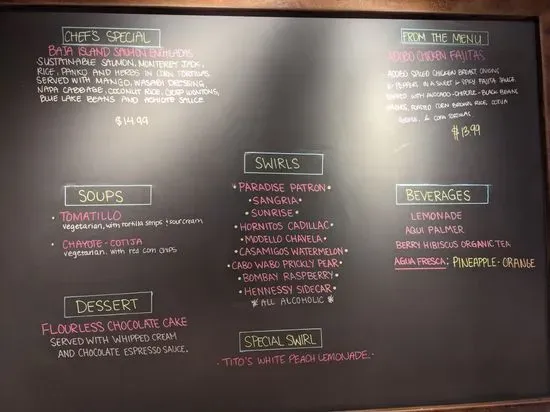 CHEF'S SPECIAL
BAJA ISLAND SALMON ENCHILADAS
SUSTAINABLE SALMON, MONTEREY JACK,
RICE, PANKO AND HERBS IN CORN TORTILLAS
SERVED WITH MANGO, WASABI DRESSING,
NAPA CABBAGE, COCONUT RICE, CRISP WONTONS,
BLUE LAKE BEANS AND ACHIOTE SAUCE
$14.99
SOUPS
• TOMATILLO
vegetarian, with tortilla strips & sour cream
• CHAYOTE - COTIJA
vegetarian, with red corn chips
DESSERT
FLOURLESS CHOCOLATE CAKE
SERVED WITH WHIPPED CREAM
AND CHOCOLATE ESPRESSO SAUCE.
SWIRLS
• PARADISE PATRON •
• SANGRIA •
• SUNRISE •
• HORNITOS CADILLAC •
• MODELLO CHAVELA •
• CASAMIGOS WATERMELON •
• CABO WABO PRICKLY PEAR •
• BOMBAY RASPBERRY •
• HENNESSY SIDECAR •
* ALL ALCOHOLIC *
SPECIAL SWIRL
• TITO'S WHITE PEACH LEMONADE •
FROM THE MENU
ADOBO CHICKEN FAJITAS
ADOBO SPICED CHICKEN BREAST, ONIONS
& PEPPERS IN A SWEET & SPICY FAJITA SAUCE.
SERVED WITH AVOCADO-CHIPOTLE-BLACK BEANS
ROASTED CORN BROWN RICE, COTIJA
CHEESE, & CORN TORTILLAS
$13.99
BEVERAGES
LEMONADE
AGUI PALMER
BERRY HIBISCUS ORGANIC TEA
AGUA FRESCA: PINEAPPLE-ORANGE